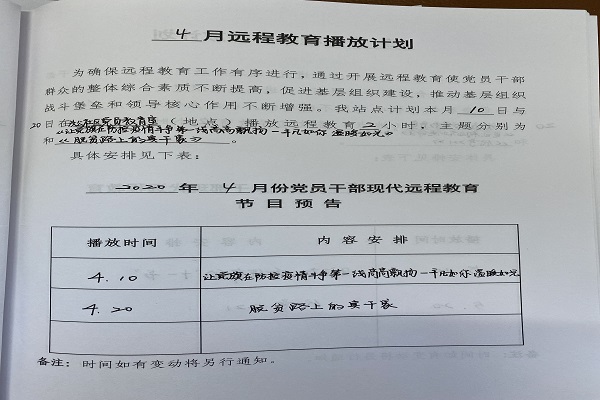 4 月远程教育播放计划
为确保远程教育工作有序进行，通过开展远程教育使党员干部
群众的整体综合素质不断提高，促进基层组织建设，推动基层组织
战斗堡垒和领导核心作用不断增强。我站点计划本月 10 日与
20 日在社区党员教育室（地点）播放远程教育 2 小时，主题分别为
《让党旗在防控疫情斗争第一线高高飘扬一平凡如你 温暖如光》
和《脱贫路上的实干家》。
具体安排见下表：
2020 年 4 月份党员干部现代远程教育
节目预告
播放时间 内容安排
4.10 让党旗在防控疫情斗争第一线高高飘扬一平凡如你 温暖如光
4.20 脱贫路上的实干家
备注：时间如有变动将另行通知。